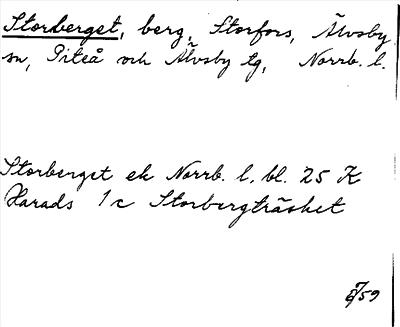 Storberget, berg, Storfors, Älvsby
sn, Piteå och Älvsby tg, Norrb. l.
Storberget ek Norrb. l. bl. 25 K
Harads 1c Storbergträsket
59